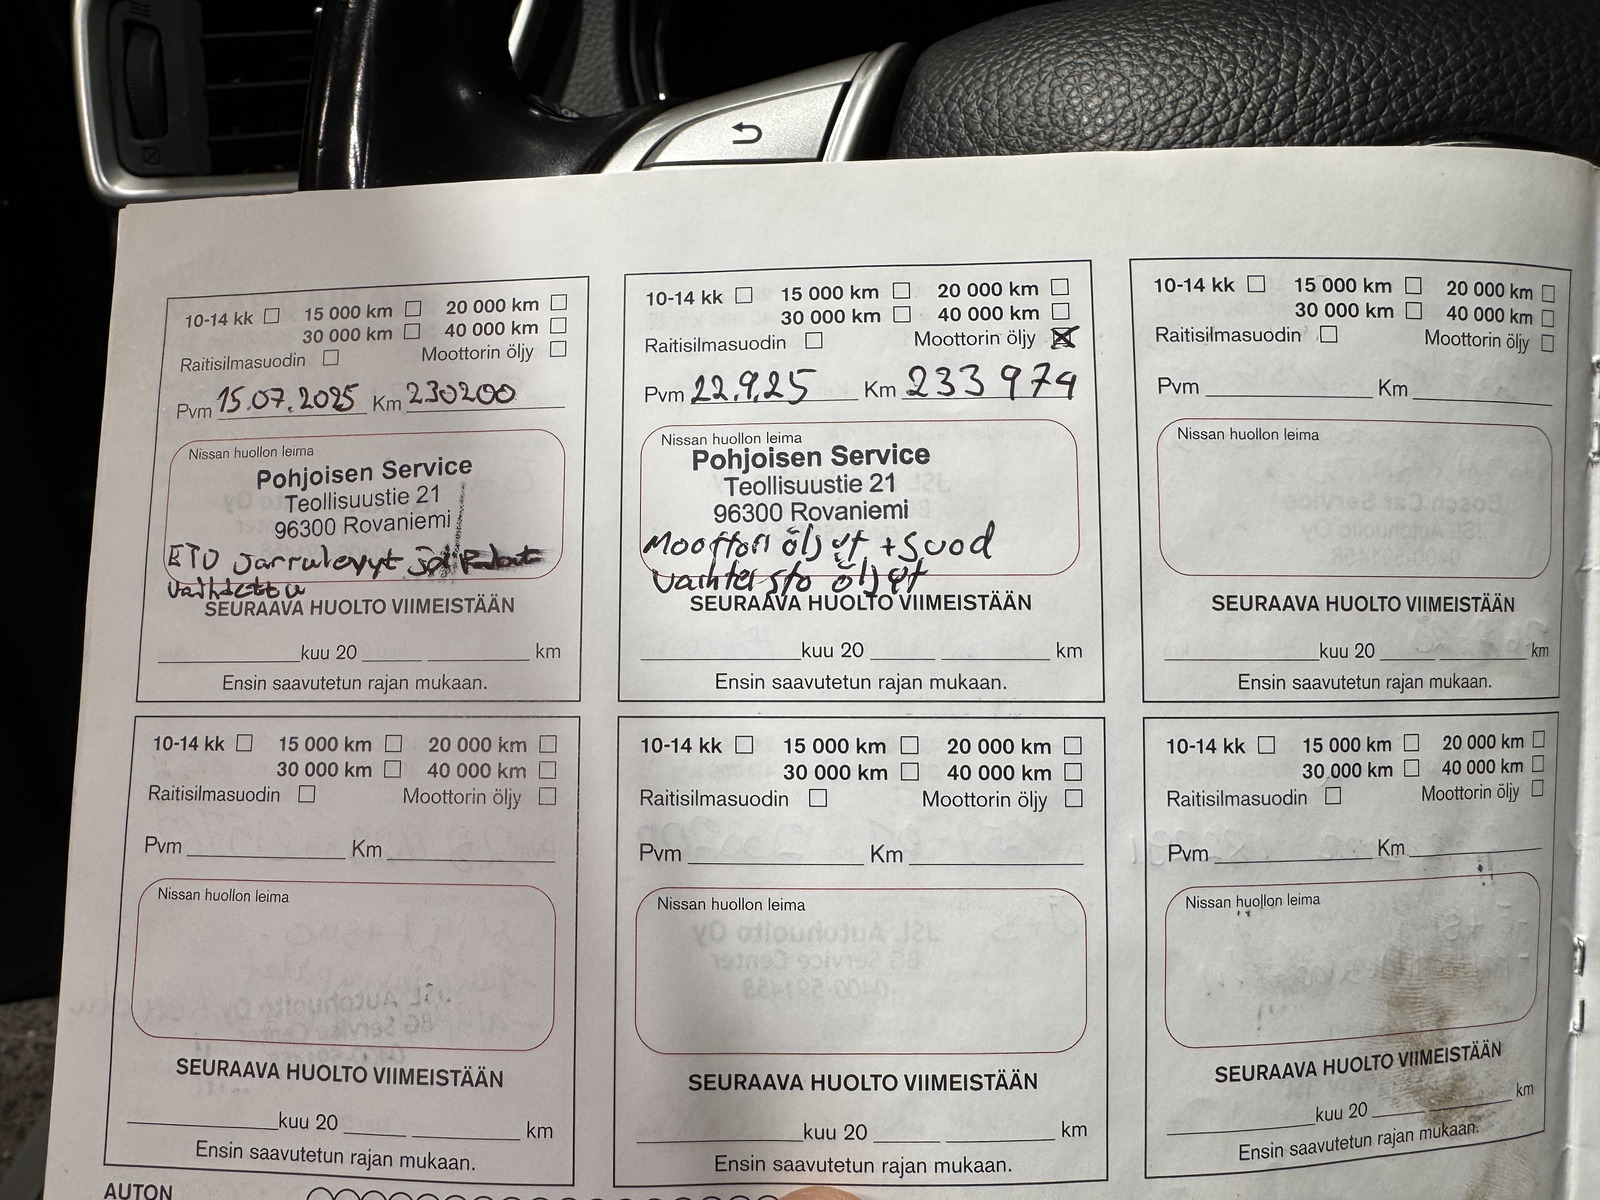 10-14 kk 15 000 km 20 000 km
30 000 km 40 000 km
Raitisilmasuodin Moottorin öljy
Pvm 15.07.2025 Km 230200
Nissan huollon leima
Pohjoisen Service
Teollisuustie 21
96300 Rovaniemi
ETU Jarrulevyt ja
vaihdettu
SEURAAVA HUOLTO VIIMEISTÄÄN
kuu 20 km
Ensin saavutetun rajan mukaan.
10-14 kk 15 000 km 20 000 km
30 000 km 40 000 km
Raitisilmasuodin Moottorin öljy
Pvm 22.9.25 Km 233974
Nissan huollon leima
Pohjoisen Service
Teollisuustie 21
96300 Rovaniemi
Moottori öljyt + suod
vaihteisto öljyt
SEURAAVA HUOLTO VIIMEISTÄÄN
kuu 20 km
Ensin saavutetun rajan mukaan.
10-14 kk 15 000 km 20 000 km
30 000 km 40 000 km
Raitisilmasuodin Moottorin öljy
Pvm Km
Nissan huollon leima
SEURAAVA HUOLTO VIIMEISTÄÄN
kuu 20 km
Ensin saavutetun rajan mukaan.
10-14 kk 15 000 km 20 000 km
30 000 km 40 000 km
Raitisilmasuodin Moottorin öljy
Pvm Km
Nissan huollon leima
SEURAAVA HUOLTO VIIMEISTÄÄN
kuu 20 km
Ensin saavutetun rajan mukaan.
10-14 kk 15 000 km 20 000 km
30 000 km 40 000 km
Raitisilmasuodin Moottorin öljy
Pvm Km
Nissan huollon leima
SEURAAVA HUOLTO VIIMEISTÄÄN
kuu 20 km
Ensin saavutetun rajan mukaan.
10-14 kk 15 000 km 20 000 km
30 000 km 40 000 km
Raitisilmasuodin Moottorin öljy
Pvm Km
Nissan huollon leima
SEURAAVA HUOLTO VIIMEISTÄÄN
kuu 20 km
Ensin saavutetun rajan mukaan.
AUTON